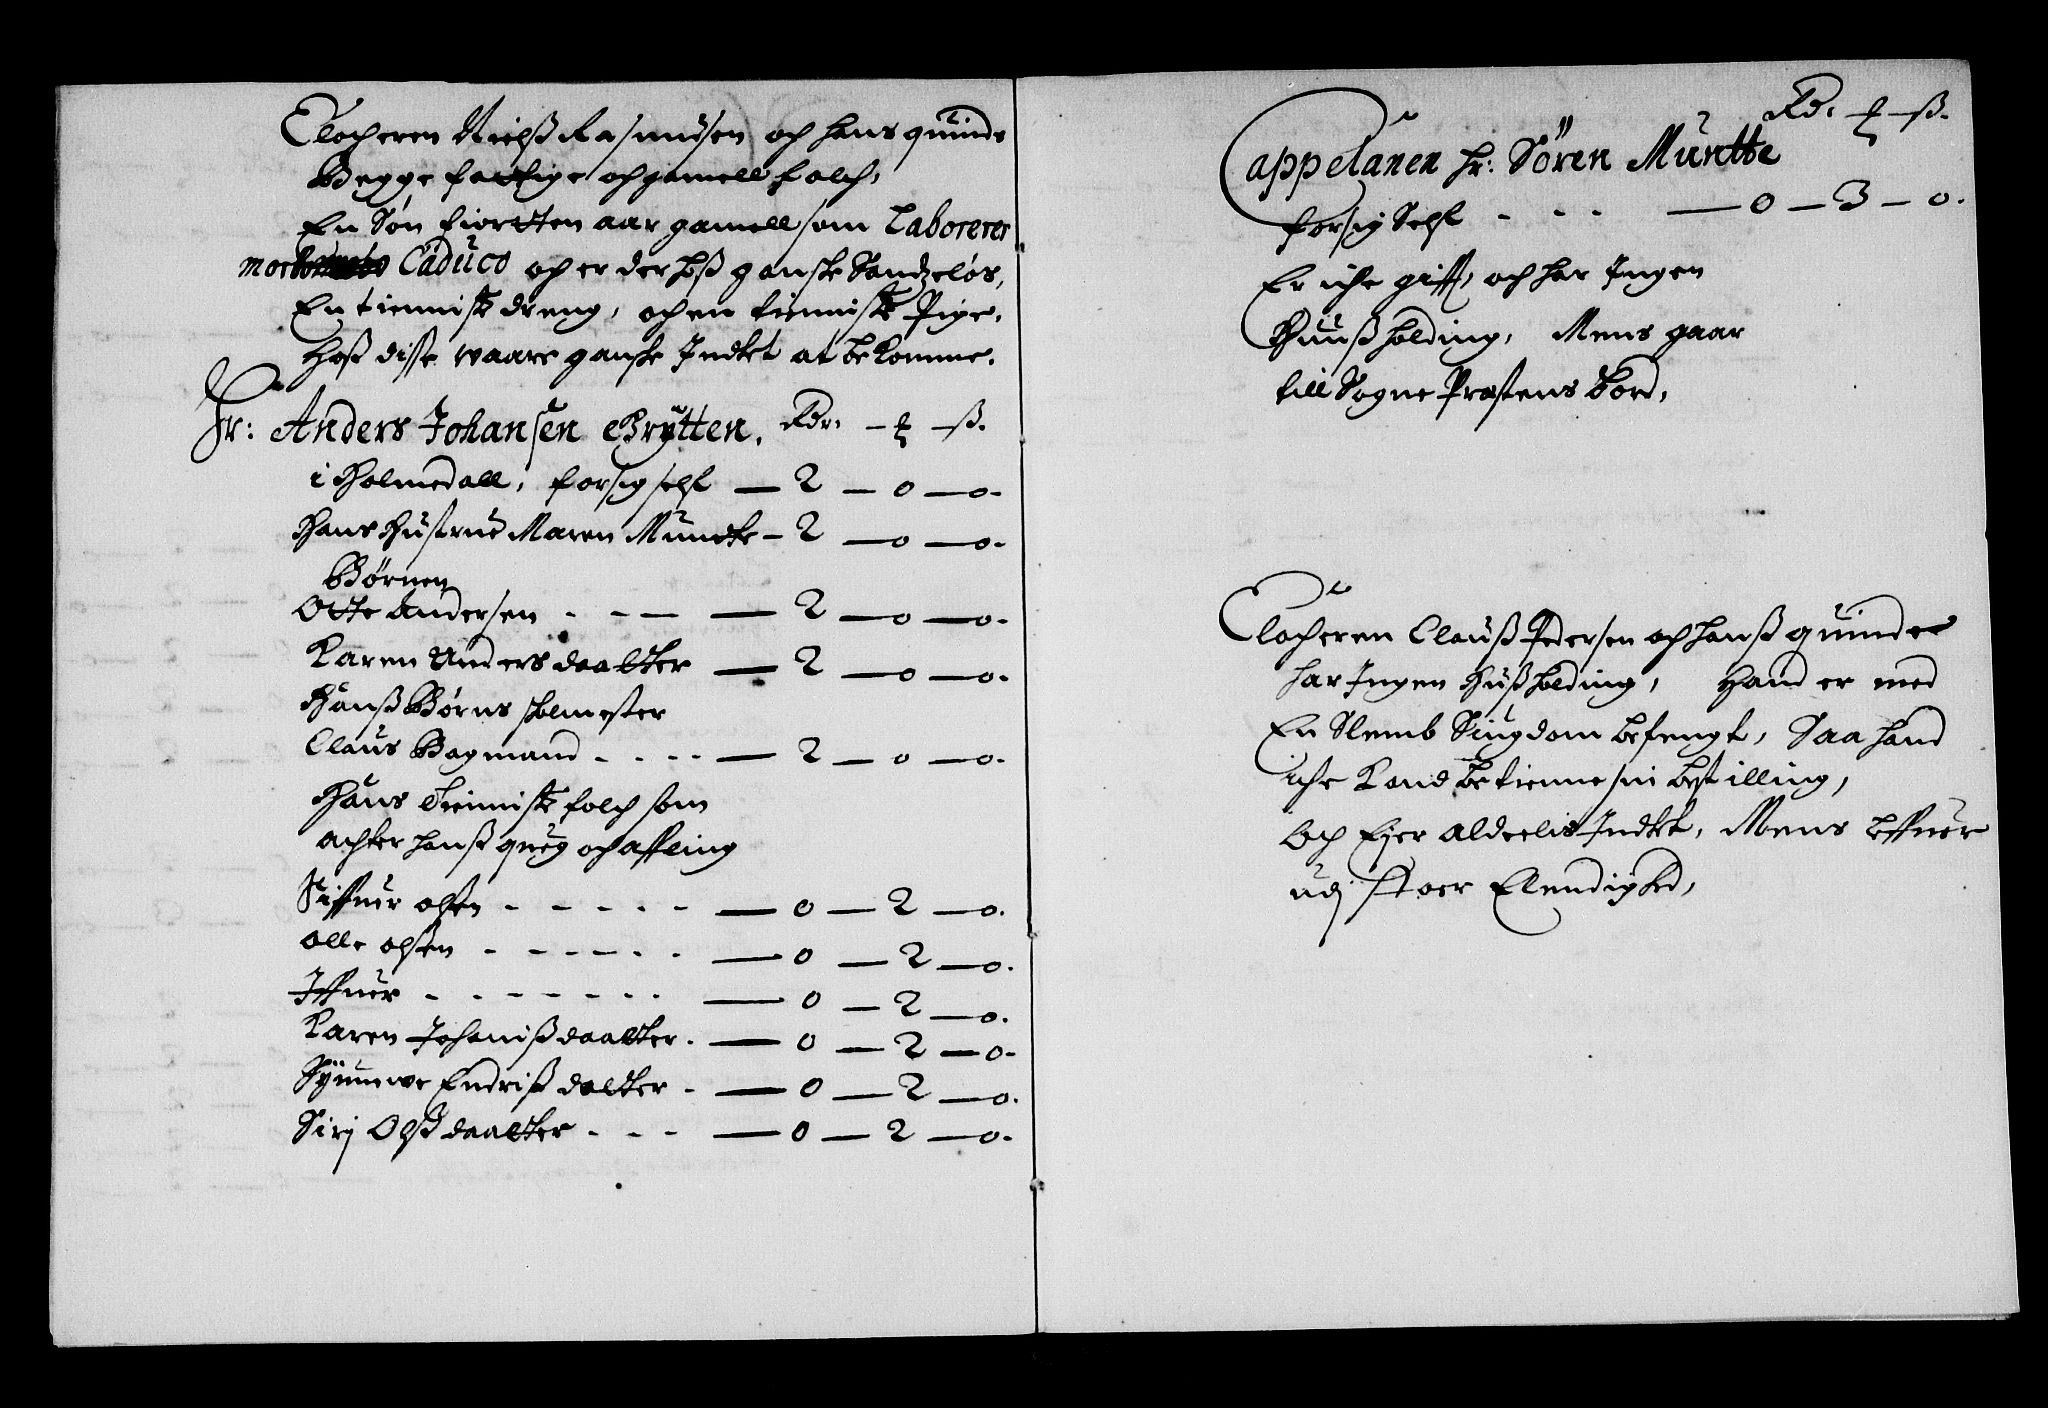 Clocheren Nielß Rasmusen och hans quinde
Begge fattige och gamell folch,
En Søn fiortten aar gamell som Laborerer
morbo Caduco och er der hoß ganske Sandzeløs,
En tienniste dreng, och en tienniste Pige,
Hoß disse waare ganske Indtet at bekomme.
Hr: Anders Johansen Brytten. Rdr. ℔ ß.
i Holmedall, for sig self — 2 — 0 — 0.
Hans Hustrue Maren Muncke — 2 — 0 — 0.
Børnen
Otte Andersen - - — — 2 — 0 — 0.
Karen Anders daatter — 2 — 0 — 0.
Hanß Børns skolmester
Claus Bagmand - - - - — 2 — 0 — 0.
Hans Tienniste folch som
achter hanß queg och affling
Siffuer olsen - - - - - — 0 — 2 — 0.
olle olsen - - - - - - — 0 — 2 — 0.
Iffuer - - - - - - - — 0 — 2 — 0.
Karen Johaniß daatter. — 0 — 2 — 0.
Synnwe Endriß datter - — 0 — 2 — 0.
Sirj Olß daatter - - - — 0 — 2 — 0.
Rd. ℔ ß.
Cappelanen hr: Søren Muntte
for sig Self - - - — 0 — 3 — 0.
Er iche gifft, och har Ingen
Huußholding, Mens gaar
till Sogne Præstens bord,
Clocheren Clauß Pedersen och hanß quinde
har Ingen Hußholding, Hand er med
En Slemb Siugdom befengt, Saa hand
iche kand betienne sin bestilling,
Och Ejer aldeelis Indtet, Mens leffuer
udj stoer Elendighed,